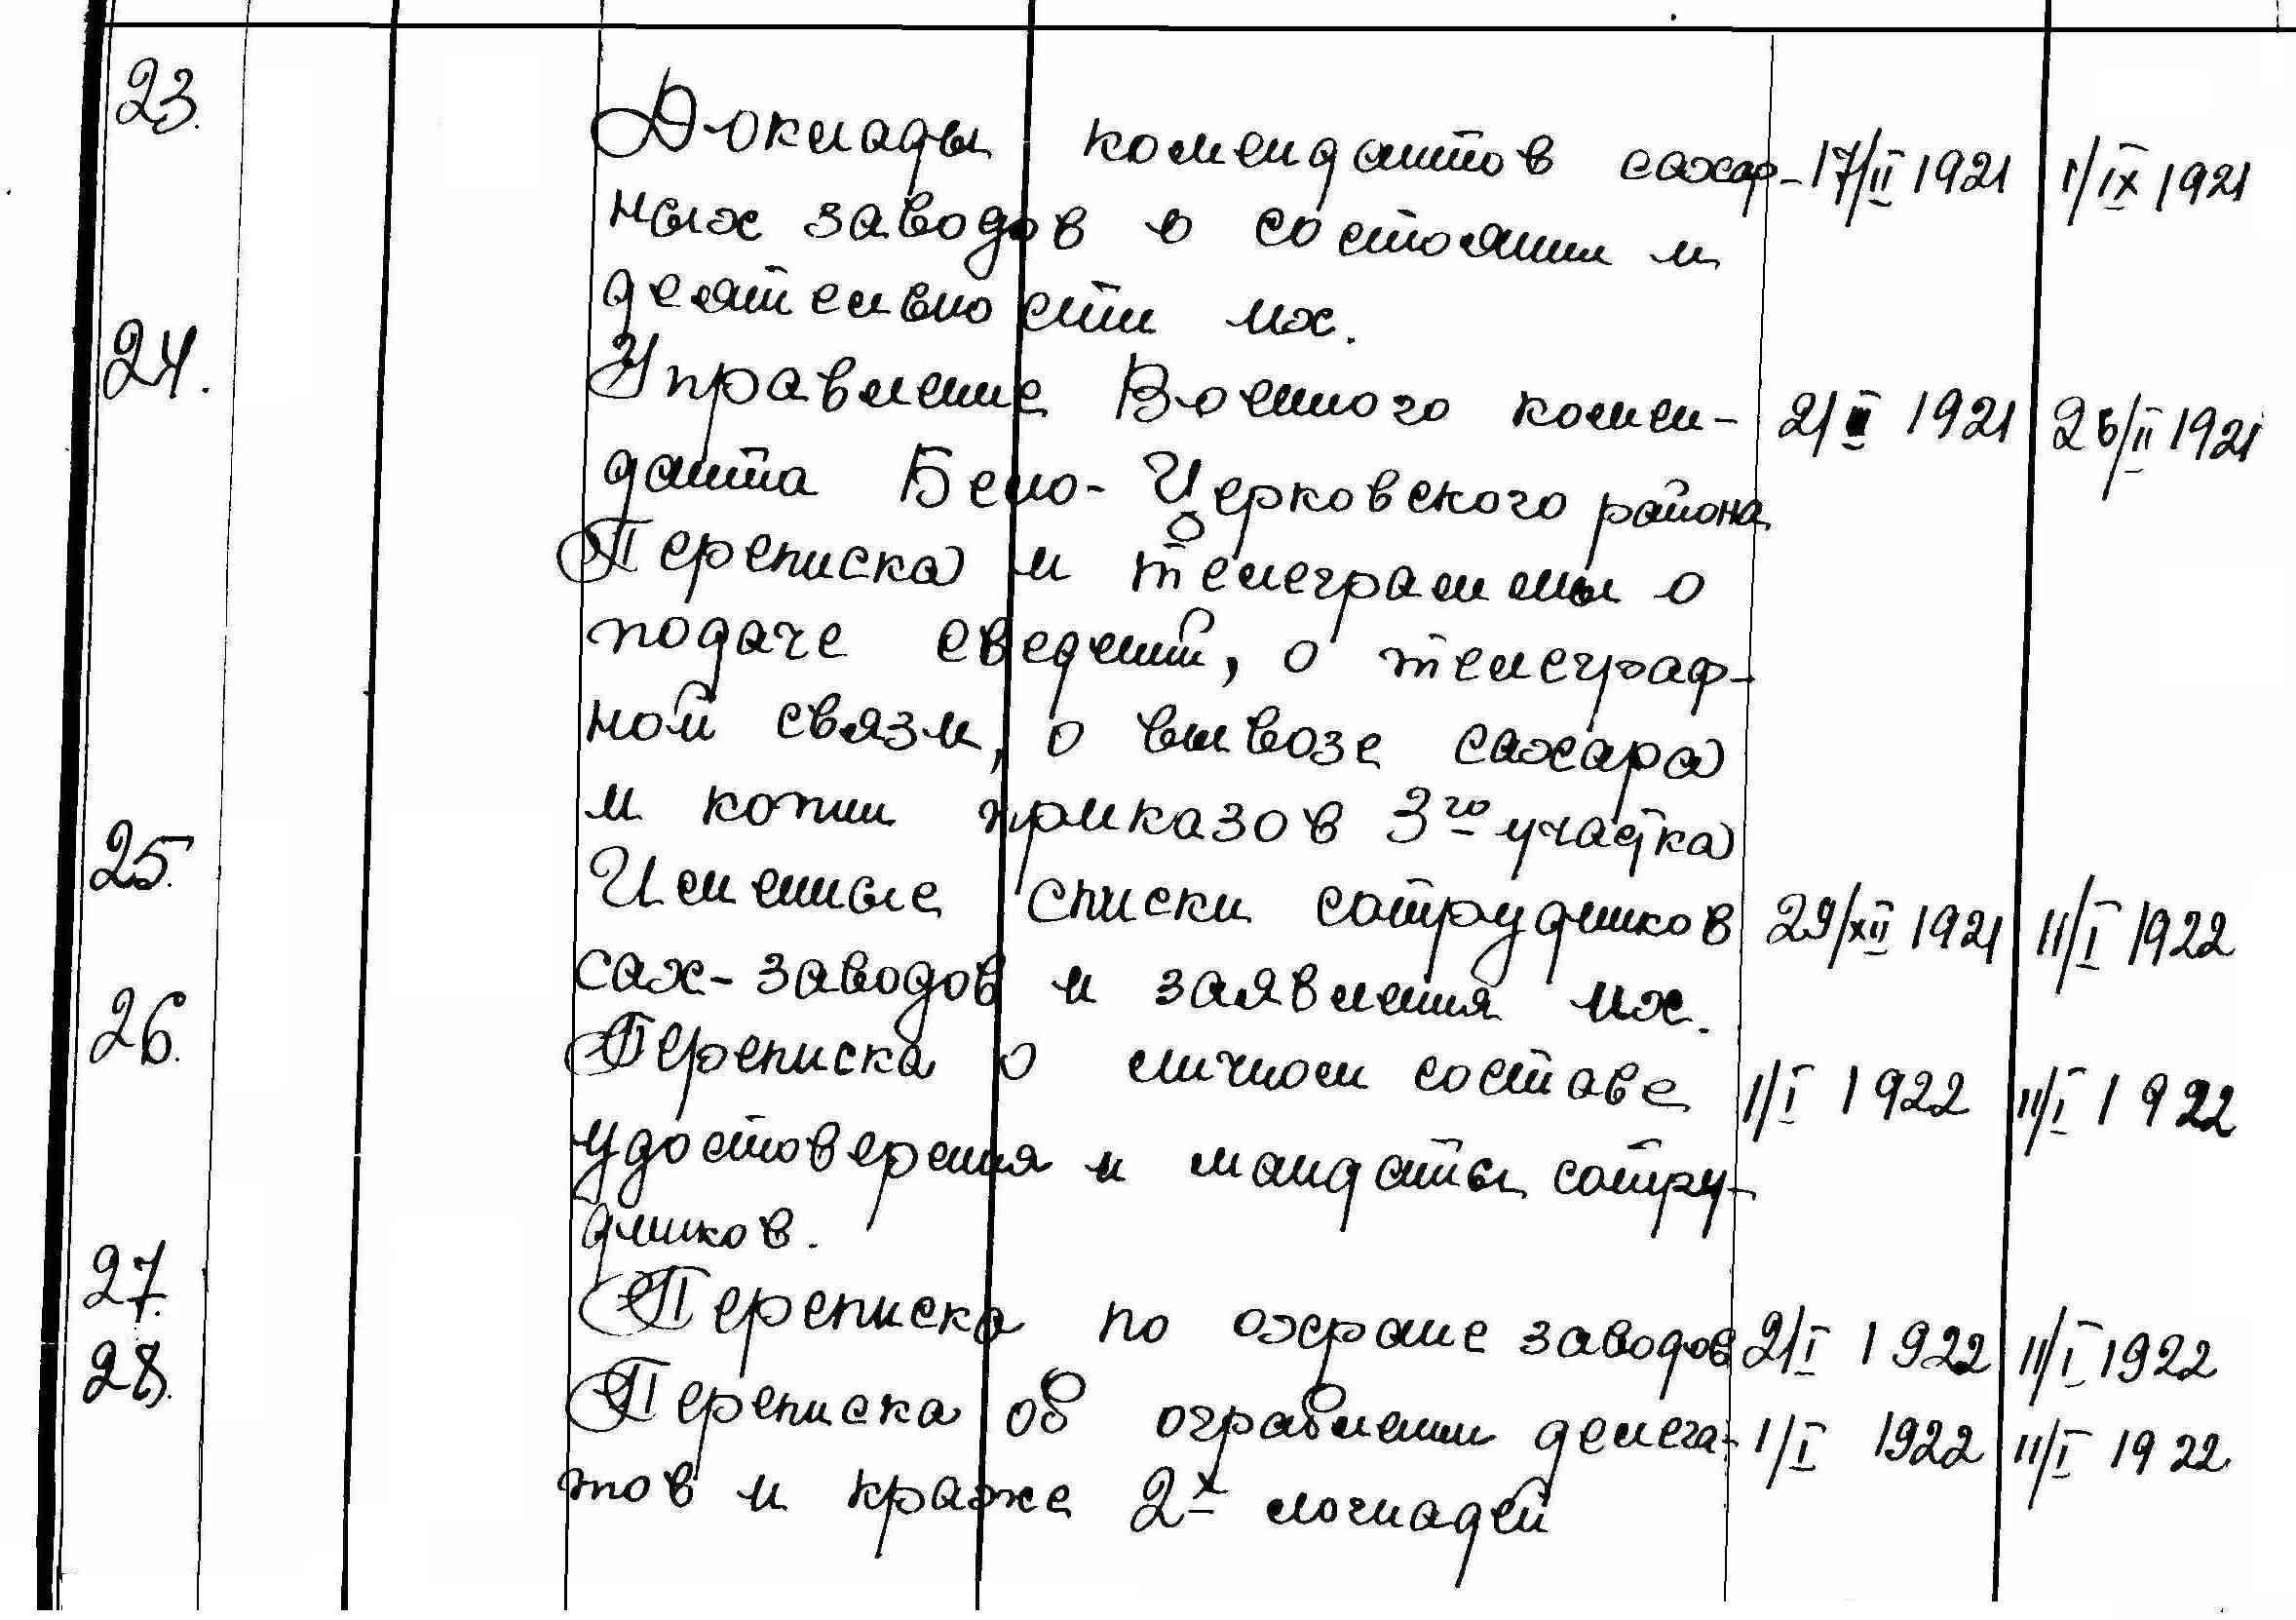 23. Доклады комендантов сахар- 17/II 1921 1/IX 1921
ных заводов о состоянии и
деятельности их.
24. Управление Военного комен- 21 II 1921 26/II 1921
данта Бело-Церковского района
Переписка и телеграммы о
подаче сведений, о телеграф-
ной связи, о вывозе сахара
и копии приказов 3го участка
25. Именные списки сотрудников 29/XII 1921 11/I 1922
сах-заводов и заявления их.
26. Переписка о личном составе 1/I 1922 11/I 1922
удостоверения и мандаты сотру-
дников.
27. Переписка по охране заводов 2/I 1922 11/I 1922
28. Переписка об ограблении делега- 1/I 1922 11/I 1922
тов и краже 2х лошадей